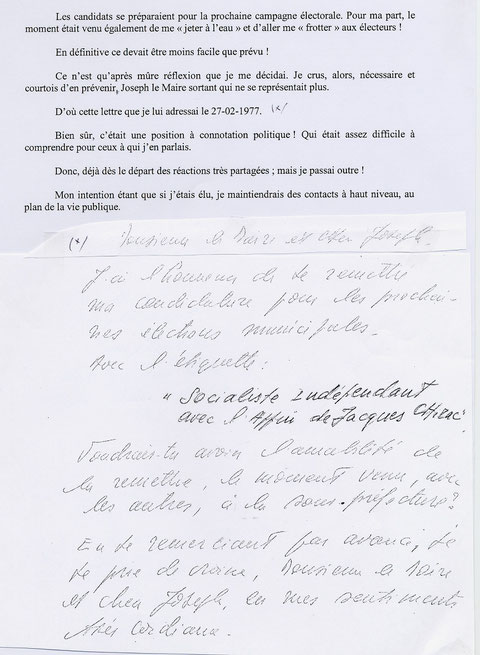 Les candidats se préparaient pour la prochaine campagne électorale. Pour ma part, le
moment était venu également de me « jeter à l'eau » et d'aller me « frotter » aux électeurs !
En définitive ce devait être moins facile que prévu !
Ce n'est qu'après mûre réflexion que je me décidai. Je crus, alors, nécessaire et
courtois d'en prévenir, Joseph le Maire sortant qui ne se représentait plus.
D'où cette lettre que je lui adressai le 27-02-1977. (x)
Bien sûr, c'était une position à connotation politique ! Qui était assez difficile à
comprendre pour ceux à qui j'en parlais.
Donc, déjà dès le départ des réactions très partagées ; mais je passai outre !
Mon intention étant que si j'étais élu, je maintiendrais des contacts à haut niveau, au
plan de la vie publique.
(x) Monsieur le Maire et cher Joseph.
J'ai l'honneur de te remettre
ma candidature pour les prochai-
nes élections municipales.
Avec l'étiquette :
" Socialiste Indépendant
avec l'Appui de Jacques Chirac"
Voudrais-tu avoir l'amabilité de
la remettre, le moment venu, avec
les autres, à la sous-préfecture ?
En te remerciant par avance, je
te prie de croire, Monsieur le Maire
et cher Joseph, en mes sentiments
très cordiaux.